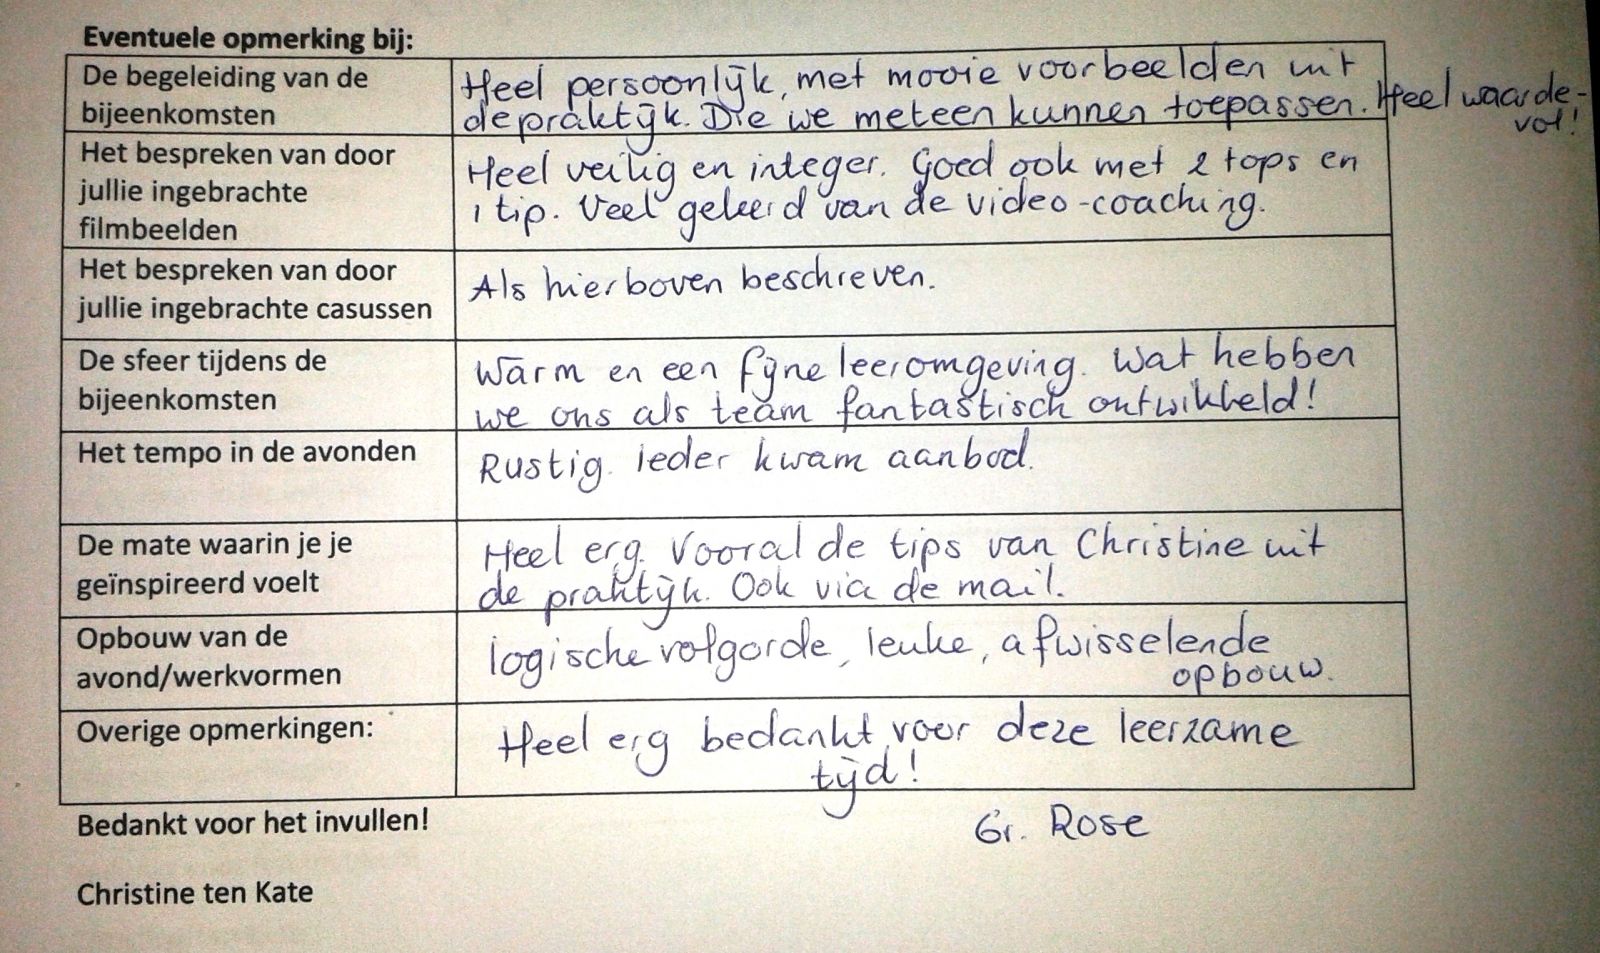 Eventuele opmerking bij:
De begeleiding van de
bijeenkomsten
Heel persoonlijk, met mooie voorbeelden uit
de praktijk. Die we meteen kunnen toepassen. Heel waarde-
vol!
Het bespreken van door
jullie ingebrachte
filmbeelden
Heel veilig en integer. Goed ook met 2 tops en
1 tip. Veel geleerd van de video-coaching.
Het bespreken van door
jullie ingebrachte casussen
Als hierboven beschreven.
De sfeer tijdens de
bijeenkomsten
Warm en een fijne leeromgeving. Wat hebben
we ons als team fantastisch ontwikkeld!
Het tempo in de avonden
Rustig. ieder kwam aanbod.
De mate waarin je je
geïnspireerd voelt
Heel erg. Vooral de tips van Christine uit
de praktijk. Ook via de mail.
Opbouw van de
avond/werkvormen
logische volgorde, leuke, afwisselende
opbouw.
Overige opmerkingen:
Heel erg bedankt voor deze leerzame
tijd!
Bedankt voor het invullen!
Gr. Rose
Christine ten Kate